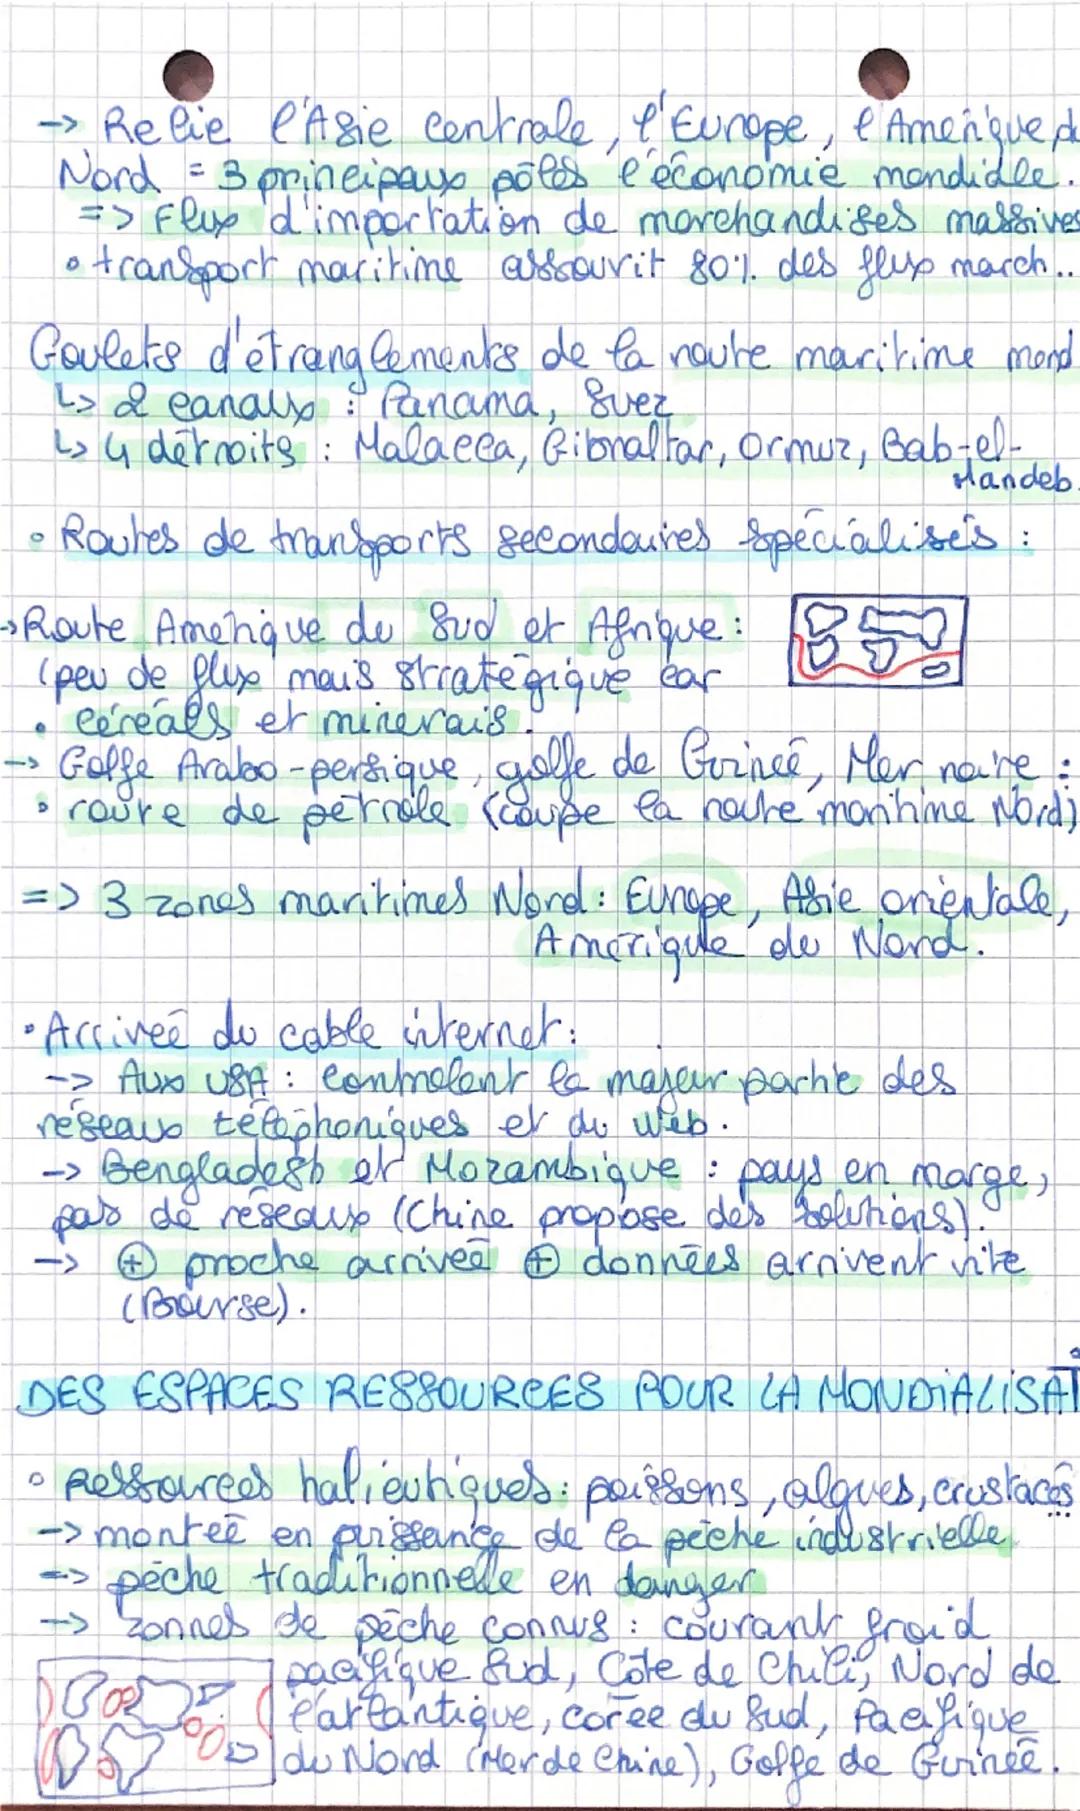 -> Relie l'Asie centrale, l'Europe, l'Amérique du
Nord = 3 principaux pôles l'économie mondiale.
=> Flux d'importation de marchandises massives
• transport maritime assouvrit 80% des flux march..
Goulets d'étranglements de la route maritime mond
↳ 2 canaux : Panama, Suez
↳ 4 détroits : Malacca, Gibraltar, Ormuz, Bab-el-
Mandeb.
• Routes de transports secondaires spécialisés :
→ Route Amérique du Sud et Afrique :
(peu de flux mais stratégique car
• céréals et minerais.
-> Golfe Arabo-persique, golfe de Guineé, Mer noire :
• route de pétrole (coupe la route maritime Nord)
=> 3 zones maritimes Nord : Europe, Asie orientale,
Amérique du Nord.
• Arriveé du cable internet :
-> Aux USA : controlent la majeur partie des
réseaux téléphoniques et du web.
-> Bengladesh et Mozambique : pays en marge,
pas de réseaux (Chine propose des solutions).
-> ⊕ proche arriveé ⊕ données arrivent vite
(Bourse).
DES ESPACES RESSOURCES POUR LA MONDIALISAT°
• Ressources halieutiques : poissons, algues, crustacés...
-> monteé en puissance de la pêche industrielle
-> pêche traditionnelle en danger
-> zonnes de pêche connus : courant froid
pacifique Sud, Côte de Chili, Nord de
l'artantique, corée du Sud, Pacifique
du Nord (Mer de Chine), Golfe de Guineé.